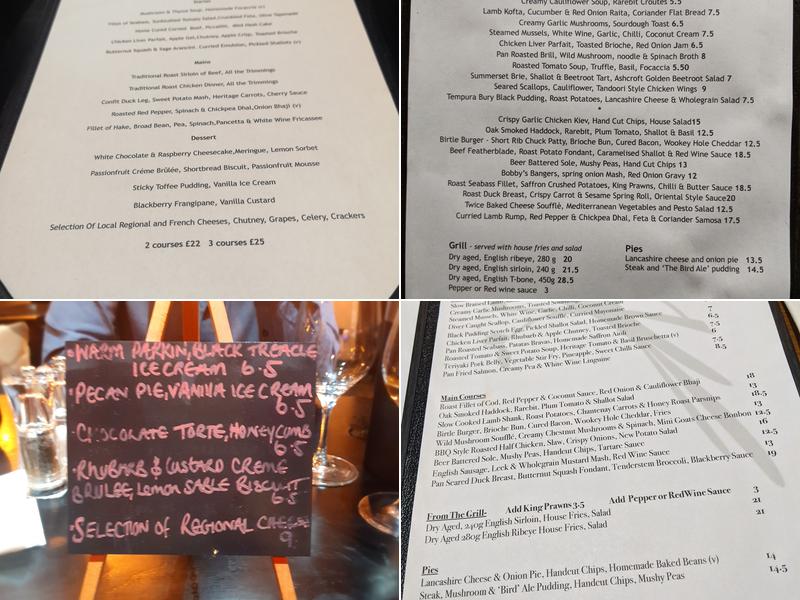 Starters
Mushroom & Thyme Soup, Homemade Focaccia (v)
Home Cured Beef, Piccalilli,
Chicken Liver Parfait, Apple Gel, Chutney, Apple Crisp, Toasted Brioche
Butternut Squash & Sage Arancini, Curried Emulsion, Pickled Shallots (v)
Mains
Traditional Roast Sirloin of Beef, All the Trimmings
Traditional Roast Chicken Dinner, All the Trimmings
Confit Duck Leg, Sweet Potato Mash, Heritage Carrots, Cherry Sauce
Roasted Red Pepper, Spinach & Chickpea Dhal,Onion Bhaji (v)
Fillet of Hake, Broad Bean, Pea, Spinach,Pancetta & White Wine Fricassee
Dessert
White Chocolate & Raspberry Cheesecake,Meringue, Lemon Sorbet
Passionfruit Créme Brûlée, Shortbread Biscuit, Passionfruit Mousse
Sticky Toffee Pudding, Vanilla Ice Cream
Blackberry Frangipane, Vanilla Custard
Selection Of Local Regional and French Cheeses, Chutney, Grapes, Celery, Crackers
2 courses £22 3 courses £25
Creamy Cauliflower Soup, Rarebit Croutes 5.5
Lamb Kofta, Cucumber & Red Onion Raita, Coriander Flat Bread 7.5
Creamy Garlic Mushrooms, Sourdough Toast 6.5
Steamed Mussels, White Wine, Garlic, Chilli, Coconut Cream 7.5
Chicken Liver Parfait, Toasted Brioche, Red Onion Jam 6.5
Pan Roasted Brill, Wild Mushroom, noodle & Spinach Broth 8
Roasted Tomato Soup, Truffle, Basil, Focaccia 5.50
Summerset Brie, Shallot & Beetroot Tart, Ashcroft Golden Beetroot Salad 7
Seared Scallops, Cauliflower, Tandoori Style Chicken Wings 9
Tempura Bury Black Pudding, Roast Potatoes, Lancashire Cheese & Wholegrain Salad 7.5
*
Crispy Garlic Chicken Kiev, Hand Cut Chips, House Salad15
Oak Smoked Haddock, Rarebit, Plum Tomato, Shallot & Basil 12.5
Birtle Burger - Short Rib Chuck Patty, Brioche Bun, Cured Bacon, Wookey Hole Cheddar 12.5
Beef Featherblade, Roast Potato Fondant, Caramelised Shallot & Red Wine Sauce 18.5
Beer Battered Sole, Mushy Peas, Hand Cut Chips 13
Bobby's Bangers, spring onion Mash, Red Onion Gravy 12
Roast Seabass Fillet, Saffron Crushed Potatoes, King Prawns, Chilli & Butter Sauce 18.5
Roast Duck Breast, Crispy Carrot & Sesame Spring Roll, Oriental Style Sauce20
Twice Baked Cheese Soufflè, Mediterranean Vegetables and Pesto Salad 12.5
Curried Lamb Rump, Red Pepper & Chickpea Dhal, Feta & Coriander Samosa 17.5
Grill - served with house fries and salad
Dry aged, English ribeye, 280 g 20
Dry aged, English sirloin, 240 g 21.5
Dry aged, English T-bone, 450g 28.5
Pepper or Red wine sauce 3
Pies
Lancashire cheese and onion pie 13.5
Steak and 'The Bird Ale' pudding 14.5
• WARM PARKIN, BLACK TREACLE
ICE CREAM 6.5
• PECAN PIE, VANILLA ICE CREAM
6.5
• CHOCOLATE TORTE, HONEYCOMB
6.5
• RHUBARB & CUSTARD CREME
BRULEE, LEMON SABLE BISCUIT
6.5
• SELECTION OF REGIONAL CHEESE
9
Slow Braised Lamb
Creamy Garlic Mushrooms, Toasted
Steamed Mussels, White Wine, Garlic, Chilli, Coconut Cream
Diver Caught Scallop, Cauliflower Soufflé, Curried Mayonaise 7
Black Pudding Scotch Egg, Pickled Shallot Salad, Homemade Brown Sauce 6.5
Chicken Liver Parfait, Rhubarb & Apple Chutney, Toasted Brioche 7.5
Pan Roasted Seabass, Patatas Bravas, Homemade Saffron Aioli 6
Roasted Tomato & Sweet Potato Soup, Heritage Tomato & Basil Bruschetta (v) 7.5
Teriyaki Pork Belly, Vegetable Stir Fry, Pineapple, Sweet Chilli Sauce 8.5
Pan Fried Salmon, Creamy Pea & White Wine Linguine
Main Courses
Roast Fillet of Cod, Red Pepper & Coconut Sauce, Red Onion & Cauliflower Bhaji 18
Oak Smoked Haddock, Rarebit, Plum Tomato & Shallot Salad 13
Slow Cooked Lamb Shank, Roast Potatoes, Chantenay Carrots & Honey Roast Parsnips 18.5
Birtle Burger, Brioche Bun, Cured Bacon, Wookey Hole Cheddar, Fries 13
Wild Mushroom Soufflé, Creamy Chestnut Mushrooms & Spinach, Mini Goats Cheese Bonbon 12.5
BBQ Style Roasted Half Chicken, Slaw, Crispy Onions, New Potato Salad 16
Beer Battered Sole, Mushy Peas, Handcut Chips, Tartare Sauce 12.5
English Sausage, Leek & Wholegrain Mustard Mash, Red Wine Sauce 13
Pan Seared Duck Breast, Butternut Squash Fondant, Tenderstem Broccoli, Blackberry Sauce 19
From The Grill- Add King Prawns 3.5 Add Pepper or RedWine Sauce 3
Dry Aged, 240g English Sirloin, House Fries, Salad 21
Dry Aged 280g English Ribeye House Fries, Salad 21
Pies
Lancashire Cheese & Onion Pie, Handcut Chips, Homemade Baked Beans (v) 14
Steak, Mushroom & 'Bird' Ale Pudding, Handcut Chips, Mushy Peas 14.5